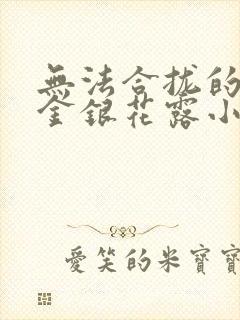 無法合拢的
金銀花露小
愛笑的米寶寶